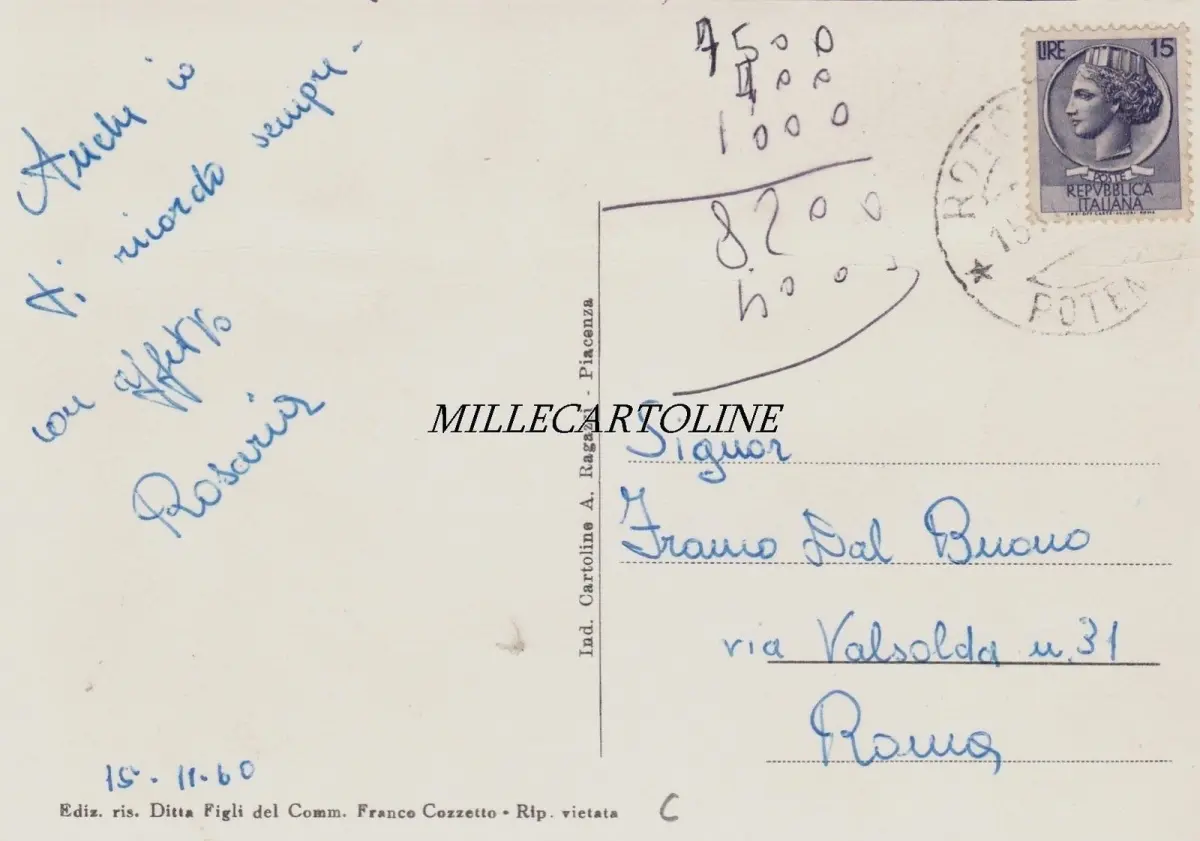 Anche io
ti ricordo sempre.
con affetto
Rosaria
15-11-60
Ediz. ris. Ditta Figli del Comm. Franco Cozzetto - Rip. vietata
C
Ind. Cartoline A. Ragazzi - Piacenza
MILLECARTOLINE
500
00
1000
8200
000
LIRE 15
POSTE
REPVBBLICA
ITALIANA
ROTO
15
POTEN
Signor
Franco Dal Buono
via Valsolda n. 31
Roma